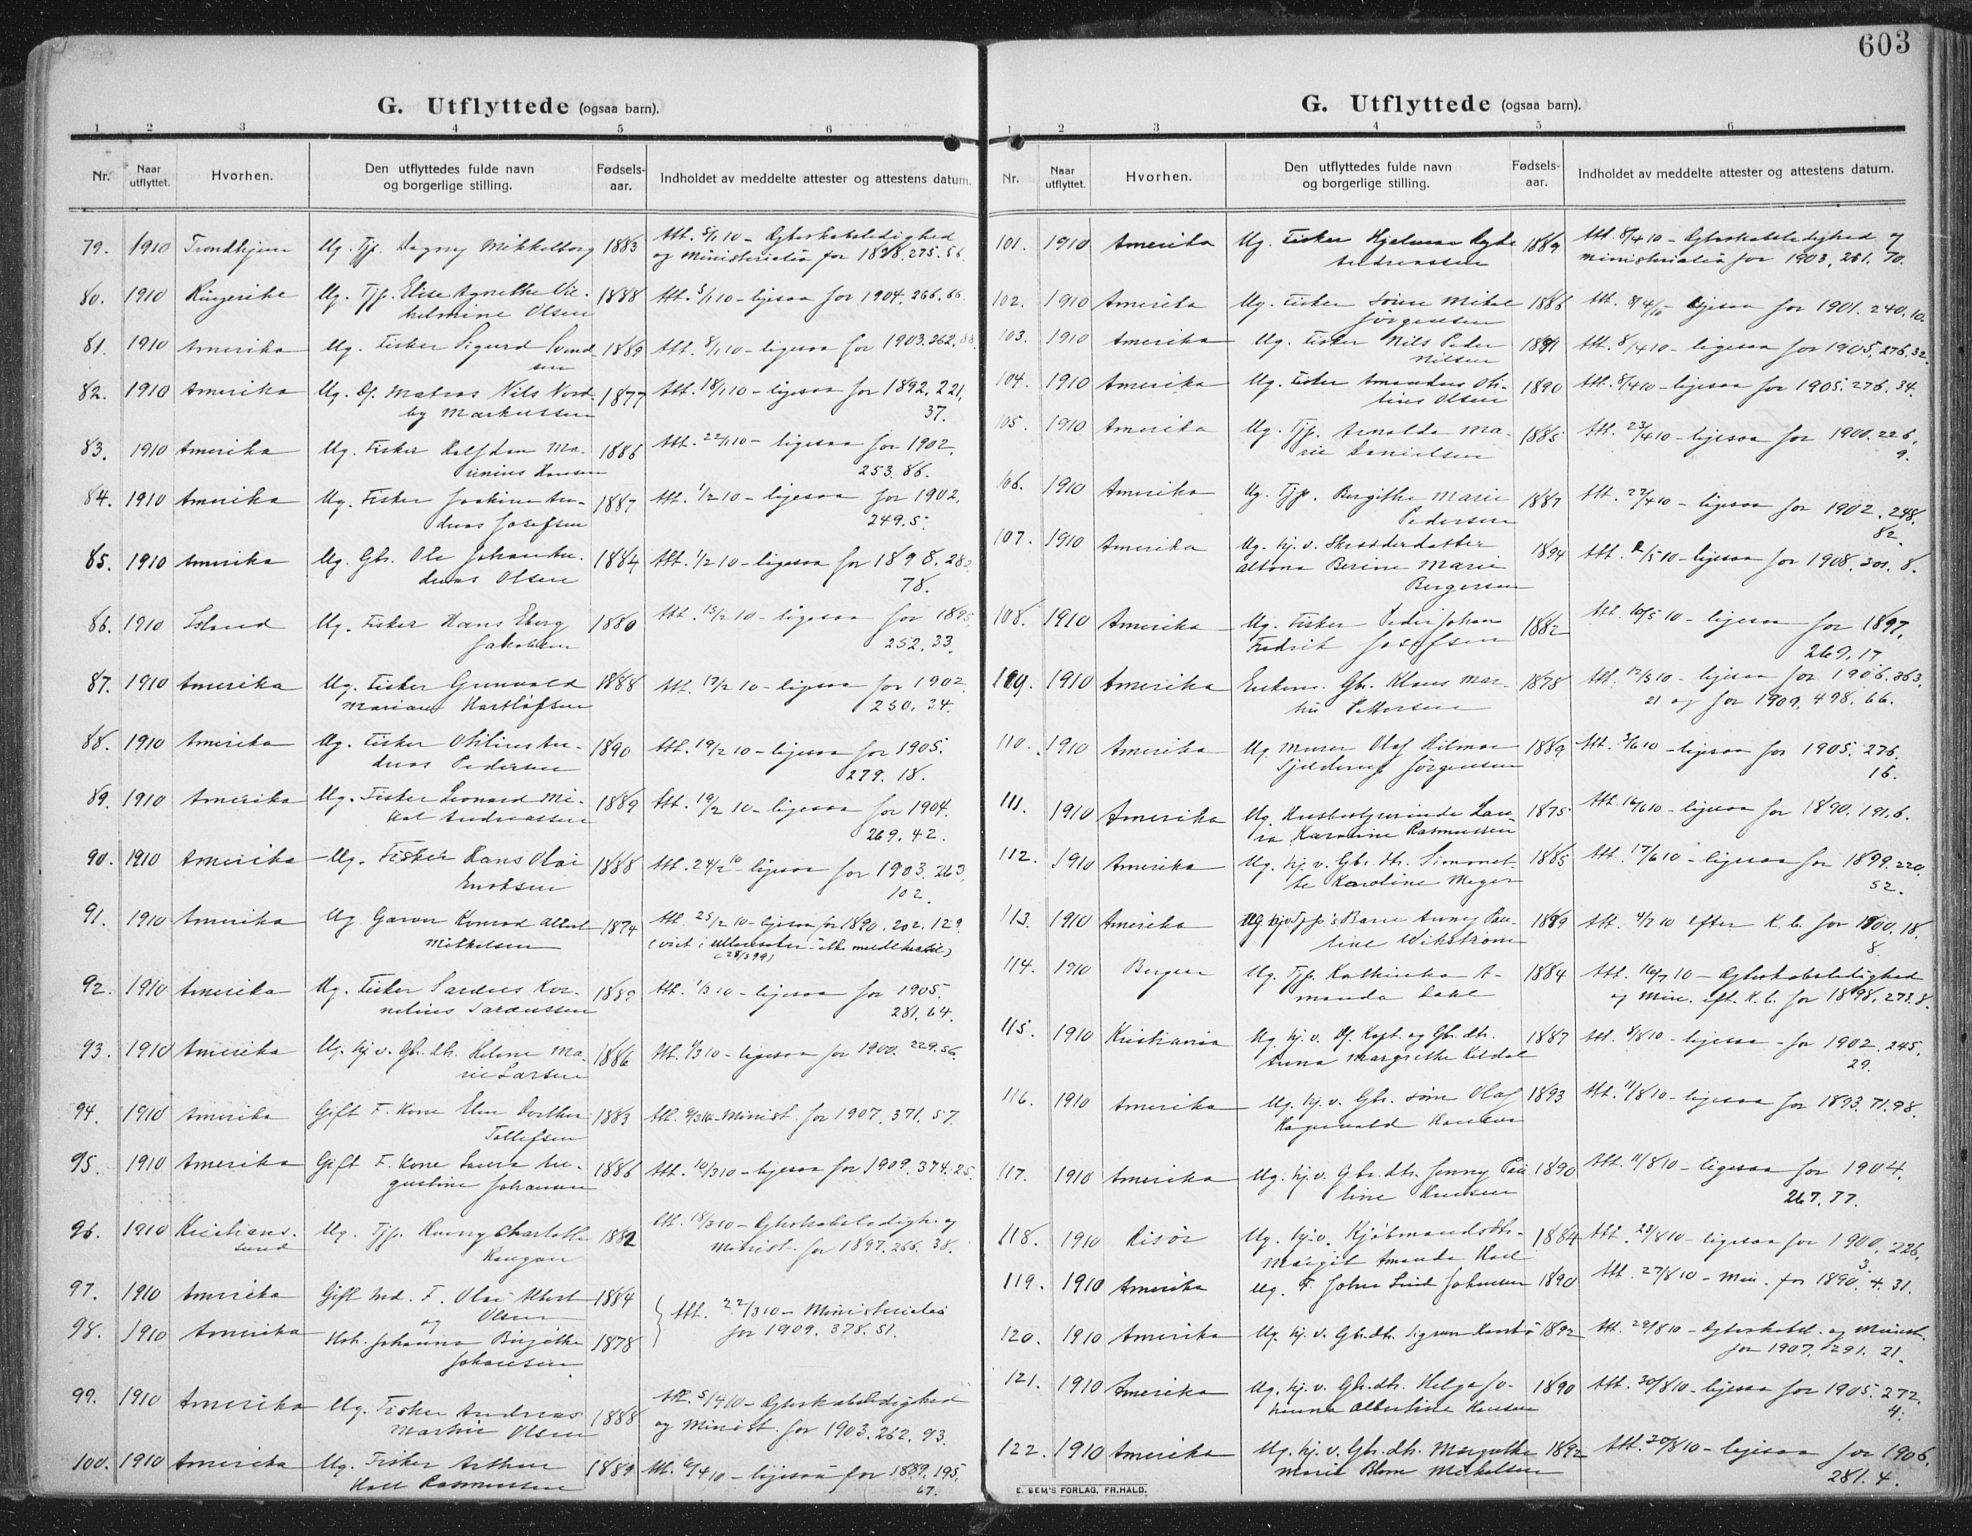 603
G. Utflyttede (ogsaa barn).
1 2 3 4 5 6
Nr. Naar utflyttet. Hvorhen. Den utflyttedes fulde navn og borgerlige stilling. Fødselsaar. Indholdet av meddelte attester og attestens datum.
79. 1910 Trondhjem Ug. Tjp. Dagny Mikkelborg 1883 Att. 5/1 10 – Ægteskabsledighed
og Ministerialia for 1898. 275. 56.
80. 1910 Ringerike Ug. Tjp. Elise Agnethe Vil- 1888 Att. 5/1 10 – ligesaa for 1904. 266. 66.
helmine Olsen
81. 1910 Amerika Ug. Fisker Sigurd Svend 1889 Att. 8/1 10 – ligesaa for 1903. 262. 88.
sen
82. 1910 Amerika Ug. Df. Matros Nils Nord 1877 Att. 18/1 10 – ligesaa for 1892. 221,
by Markussen 37.
83. 1910 Amerika Ug. Fisker Halfdan Ma- 1886 Att. 22/1 10 – ligesaa for 1902,
rinius Hansen 253. 86.
84. 1910 Amerika Ug. Fisker Joakim An- 1887 Att. 1/2 10 – ligesaa for 1902,
dreas Josefsen 249. 5.
85. 1910 Amerika Ug. Gbr. Ole Johan An- 1884 Att. 1/2 10 – ligesaa for 1898. 282
dreas Olsen 78.
86. 1910 Island Ug. Fisker Hans Eberg 1880 Att. 15/2 10 – ligesaa for 1895
Jakobsen 252. 33.
87. 1910 Amerika Ug. Fisker Gunvald 1888 Att. 17/2 10 – ligesaa for 1902.
Marian Hartløfsen 250. 34.
88. 1910 Amerika Ug. Fisker Otilius An- 1890 Att. 19/2 10 – ligesaa for 1905.
dreas Pedersen 279. 18.
89. 1910 Amerika Ug. Fisker Leonard Mi- 1889 Att. 19/2 10 – ligesaa for 1904.
kal Andreassen 269. 42.
90. 1910 Amerika – Ug. Fisker Hans Olai 1888 Att. 24/2 10 – ligesaa for 1903. 263,
Enoksen 102.
91. 1910 Amerika Ug. Garver Konrad Albert 1874 Att. 25/2 10 – ligesaa for 1890. 202. 129.
Mikkelsen
92. 1910 Amerika Ug. Fisker Sardus Kor- Att. 1/3 10 – ligesaa for 1905.
nelius Sardussen 281. 64.
93. 1910 Amerika Ug. hj. v. Gbr. dtr. Helene Ma- 1886 Att. 1/3 10 – ligesaa for 1900. 229. 56.
rie Larsen
94. 1910 Amerika Gift F. Kone Elen Dorthea 1883 Minist. for 1907. 371. 57.
Tollefsen
95. 1910 Amerika Gift F. Kone Laura Au- 1886 Att. 10/3 10 – ligesaa for 1909. 374. 25.
gustine Johansen
96. 1910 Kristians- Ug. Tjp. Charlotte 1882 Att. 18/3 10 – Ægteskabsledigh. og
sund Minist. for 1897. 266. 38.
97. 1910 Amerika Gift Md. F. Olai Albert 1884
Olsen Att. 22/3 10 – Ministerialia
og for 1909. 378. 51.
98. 1910 Amerika Hst. Johanna Birgitte 1878
Johansen
99. 1910 Amerika Ug. Fisker Andreas 1888 Att. 5/4 10 – Ægteskabsledighed
Martin Olsen og Minist. for 1903. 262. 93.
100. 1910 Amerika Ug. Fisker Arthur 1889 Att. 6/4 10 – ligesaa for 1889. 195.
Hall Rasmussen 67.
G. Utflyttede (ogsaa barn).
1 2 3 4 5 6
Nr. Naar utflyttet. Hvorhen. Den utflyttedes fulde navn og borgerlige stilling. Fødselsaar. Indholdet av meddelte attester og attestens datum.
101. 1910 Amerika Ug. Fisker Hjelmar 1889 Att. 8/4 10 – Ægteskabsledighed og
Andreassen Ministerialia for 1903. 261. 70.
102. 1910 Amerika Ug. Fisker Sören Mikal 1886 Att. 8/4 10 – ligesaa for 1901. 240. 10.
Jørgensen
103. 1910 Amerika Ug. Fisker Nils Peder Att. 8/4 10 – ligesaa for 1905. 276. 32.
Nilsen
104. 1910 Amerika Ug. Fisker Amandus Oti- 1890 Att. 8/4 10 – ligesaa for 1905. 276. 34.
lius Olsen
105. 1910 Amerika Ug. Tjp. Arnolda Ma- 1885 Att. 23/4 10 – ligesaa for 1900. 226,
rie Danielsen 9.
106. 1910 Amerika Ug. Tjp. Bergithe Marie 1887 Att. 27/4 10 – ligesaa for 1902. 248.
Pedersen 82.
107. 1910 Amerika Ug. hj. v. Skrædderdatter 1894 Att. 2/5 10 – ligesaa for 1908. 301. 8.
Altona Berine Marie
Bergersen
108. 1910 Amerika Ug. Fisker Peder Johan 1882 Att. 10/5 10 – ligesaa for 1897,
Fredrik Josefsen 269. 17
109. 1910 Amerika Enkem. Gbr. Klaus Mar- 1878 Att. 12/5 10 – ligesaa for 1906. 363.
Pettersen 21 og for 1909. 498. 66.
110. 1910 Amerika Ug. Murer Olaf Hilmar 1889 Att. 3/6 10 – ligesaa for 1905. 276.
Sjelderup Jørgensen 16.
111. 1910 Amerika Ug. Husbestyrerinde Lau- 1875 Att. 16/6 10 – ligesaa for 1890. 191. 6.
ra Karoline Rasmussen
112. 1910 Amerika Ug. hj. v. Gbr. dtr. Simonet- 1885 Att. 17/6 10 – ligesaa for 1899. 220,
te Karoline Meyer 52.
113. 1910 Amerika Ug. Tjp's Barn Anny Pau- 1899 Att. 4/7 10 efter K. b. for 1900. 18.
line Wikstrøm 8.
114. 1910 Bergen Ug. Tjp. Kathinka A- 1884 Att. 16/7 10 – Ægteskabsledighed
manda Dahl og Min. eft. K. b. for 1898. 273. 8.
115. 1910 Kristiania Ug. hj. v. Df. Kapt. og Gbr. dtr. 1887 Att. 8/8 10 – ligesaa – for 1902. 245.
Anna Margrethe Kildal 29.
116. 1910 Amerika Ug. hj. v. Gbr. søn Olaf 1893 Att. 11/8 10 – ligesaa for 1893. 71. 98.
Ragnvald Hansen
117. 1910 Amerika Ug. hj. v. Gbr. dtr. Jenny Pau 1890 Att. 11/8 10 – ligesaa for 1904.
line Knudsen 267. 77.
118. 1910 Risør Ug. hj. v. Kjøbmandsdtr. 1884 Att. 23/8 10 – ligesaa for 1900. 226,
Margit Amanda 3.
119. 1910 Amerika Ug. F. Johan Johansen 1890 Att. 27/8 10 – Min. for 1890. 4. 31.
120. 1910 Amerika Ug. hj. v. Gbr. dtr. Sigrun 1892 Att. 29/8 10 – Ægteskabsl. og Minist.
for 1907. 291. 21.
121. 1910 Amerika Ug. hj. v. Gbr. dtr. Helga Jo- 1890 Att. 30/8 10 – ligesaa for 1905. 272
hanna Albertine Hansen 4.
122. 1910 Amerika Ug. hj. v. Gbr. dtr. Margrethe 1892 Att. 30/8 10 – ligesaa for 1906,
Marie Blom Mikalsen 281. 4.
E. SEM'S FORLAG, FR.HALD.